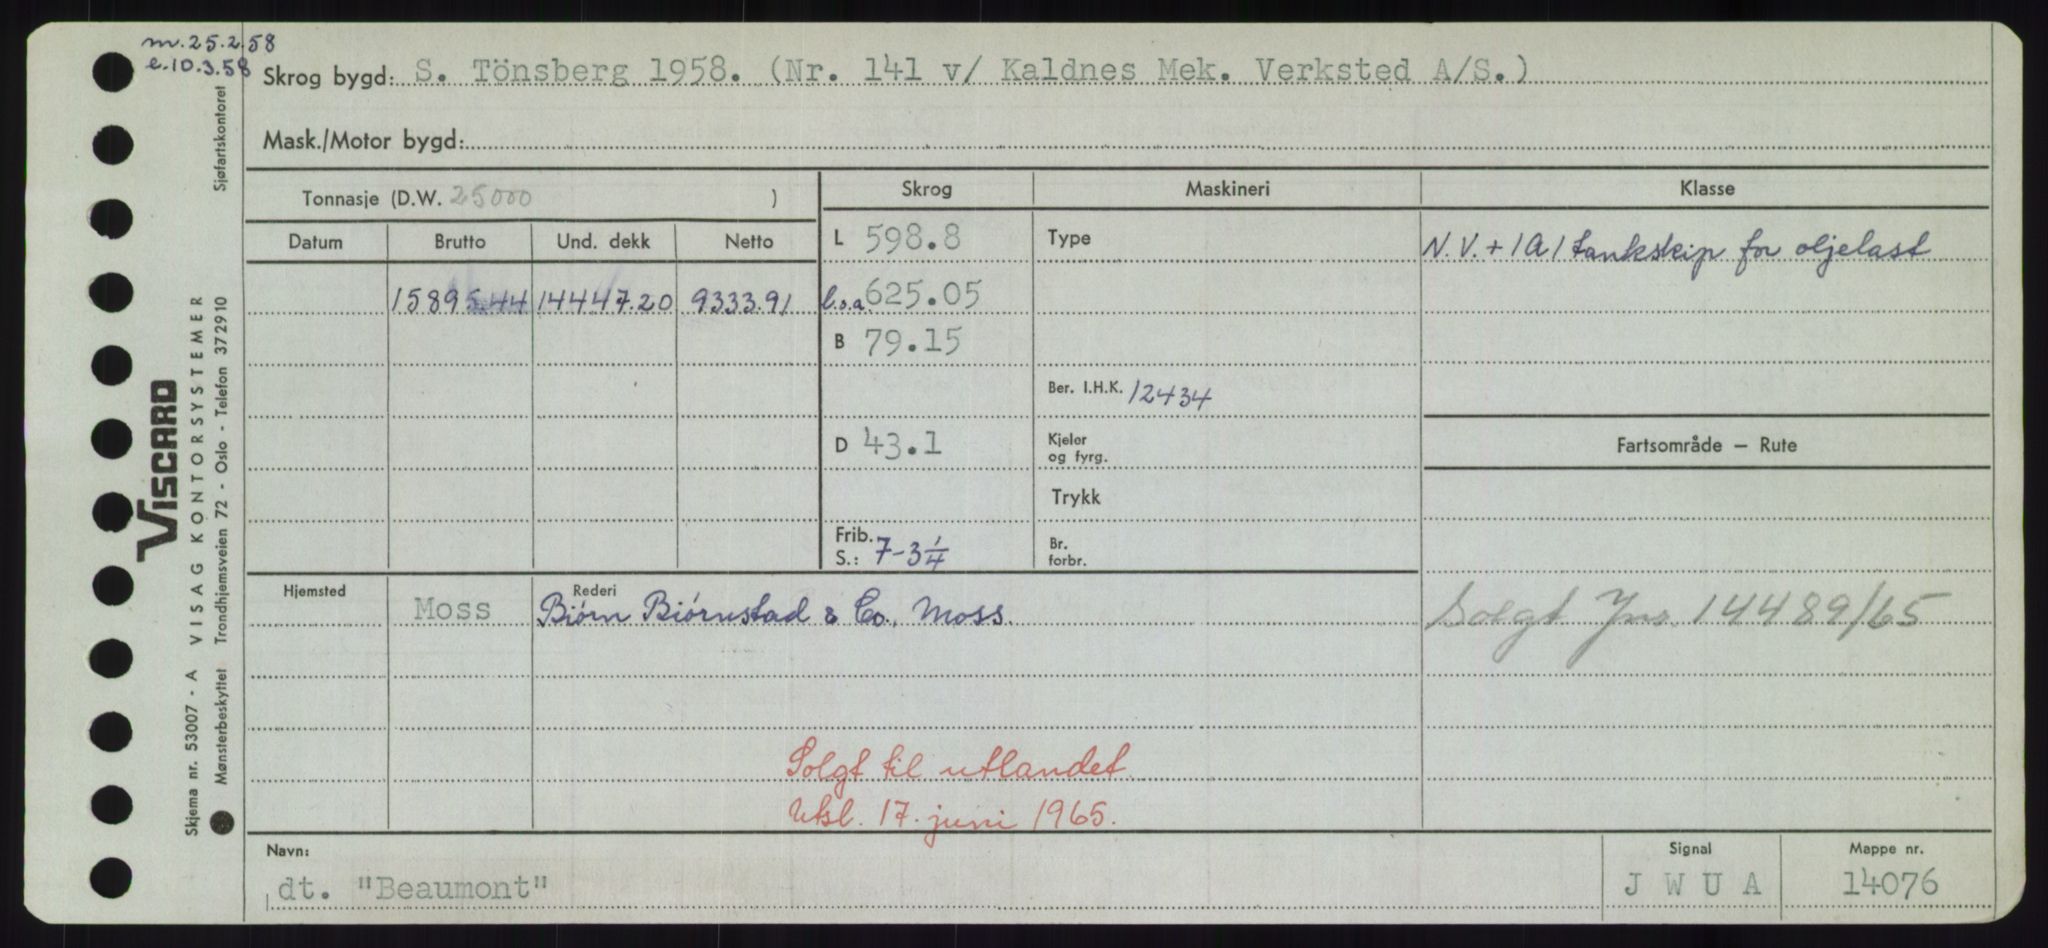 m. 25.2.58
e. 10.3.58
Skrog bygd: S. Tönsberg 1958. (Nr. 141 v/ Kaldnes Mek. Verksted A/S.)
Mask./Motor bygd:
Tonnasje (D.W. 25000 )
Datum Brutto Und. dekk Netto
15895.44 14447.20 9333.91
Skrog Maskineri Klasse
L 598.8
l.o.a. 625.05
B 79.15
D 43.1
Frib.
S.: 7-3 1/4
Type
Ber. I.H.K. 12434
Kjeler
og fyrg.
Trykk
Br.
forbr.
N.V. + 1A1 tankskip for oljelast
Fartsområde — Rute
Solgt Jnr. 14489/65
Hjemsted Rederi
Moss Biörn Biörnstad & Co., Moss.
Solgt til utlandet
Utsl. 17. juni 1965.
Navn: Signal Mappe nr.
dt. "Beaumont" J W U A 14076
Sjøfartskontoret
VISCARD
Skjema nr. 53007 - A VISAG KONTORSYSTEMER
Mønsterbeskyttet Trondhjemsveien 72 - Oslo - Telefon 372910